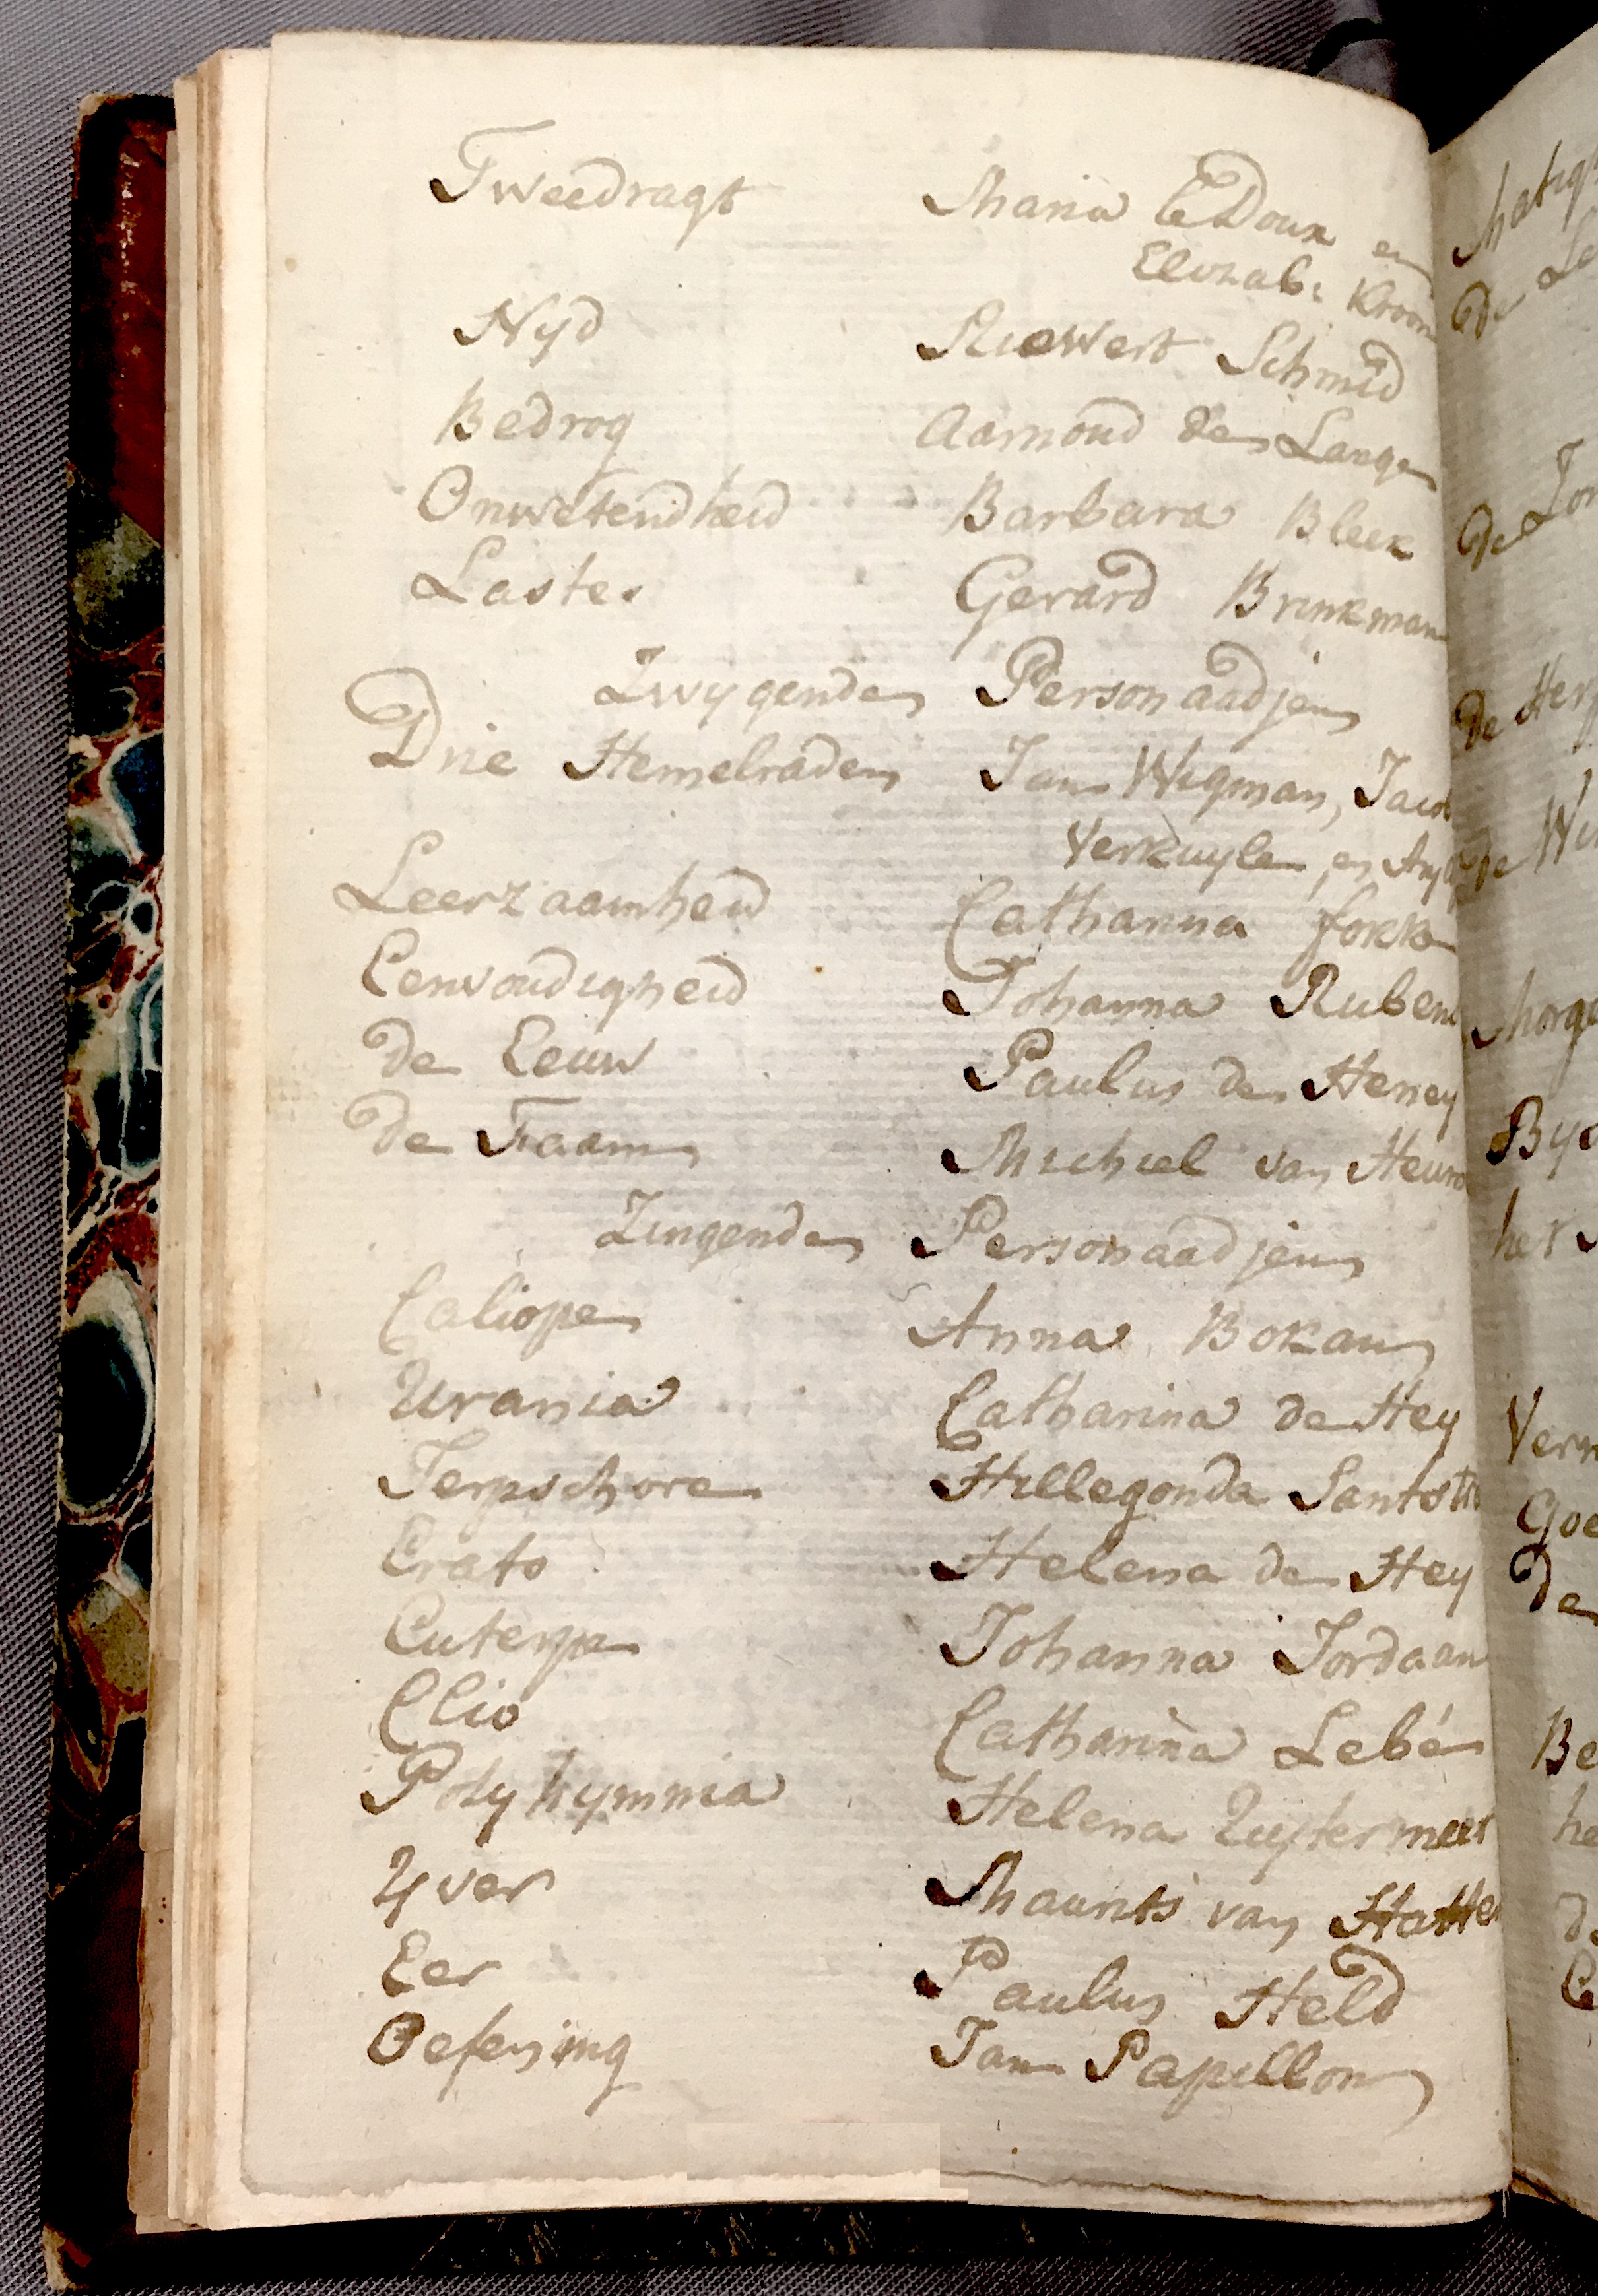 Tweedragt Maria le Doux en
Elizab: Kroon
Nyd Riewert Schmid
Bedrog Aarnoud de Lange
Onwetendheid Barbara Bleek
Laster Gerard Brinkman
Zwygende Personaadjen
Drie Hemelraden Jan Wigman, Jacob
Verkuyle en
Leerzaamheid Catharina fokke
Eenvoudigheid Johanna Rubens
de Eeuw Paulus de Heney
de Faam Michiel van
Zingende Personaadjen
Caliope Anna Bokan
Urania Catharina de Hey
Terpschore Hillegonda
Erato Helena de Hey
Euterpe Johanna Jordaan
Clio Catharina Lebé
Polyhymnia Helena Zuytermeer
Yver Maurits van
Eer Paulus Held
Oefening Jan Papillon
de
de
de
de
Be
he